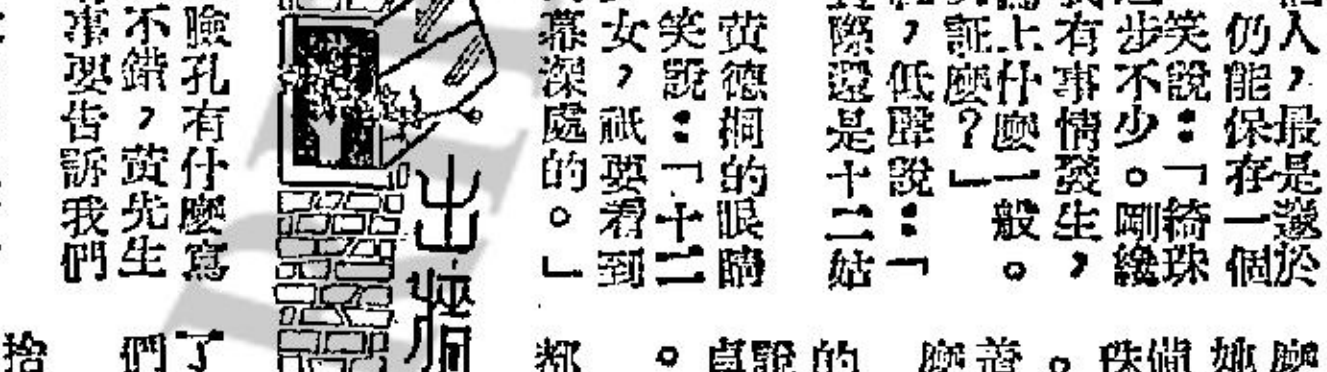 人，最是於
仍能保存一個
笑說：「綺珠
步不少。剛纔
有事情發生，
上什麼一般。
証麼？」
，低聲說：「
際還是十二姑
黄德的眼睛
笑說：「十二
女，祇要看到
幕深處的。」
出
臉孔有什麼寫
不錯，黄先生
事要告訴我們
麼
她
珠
。
麼
的
說
。
都
了
們
拾